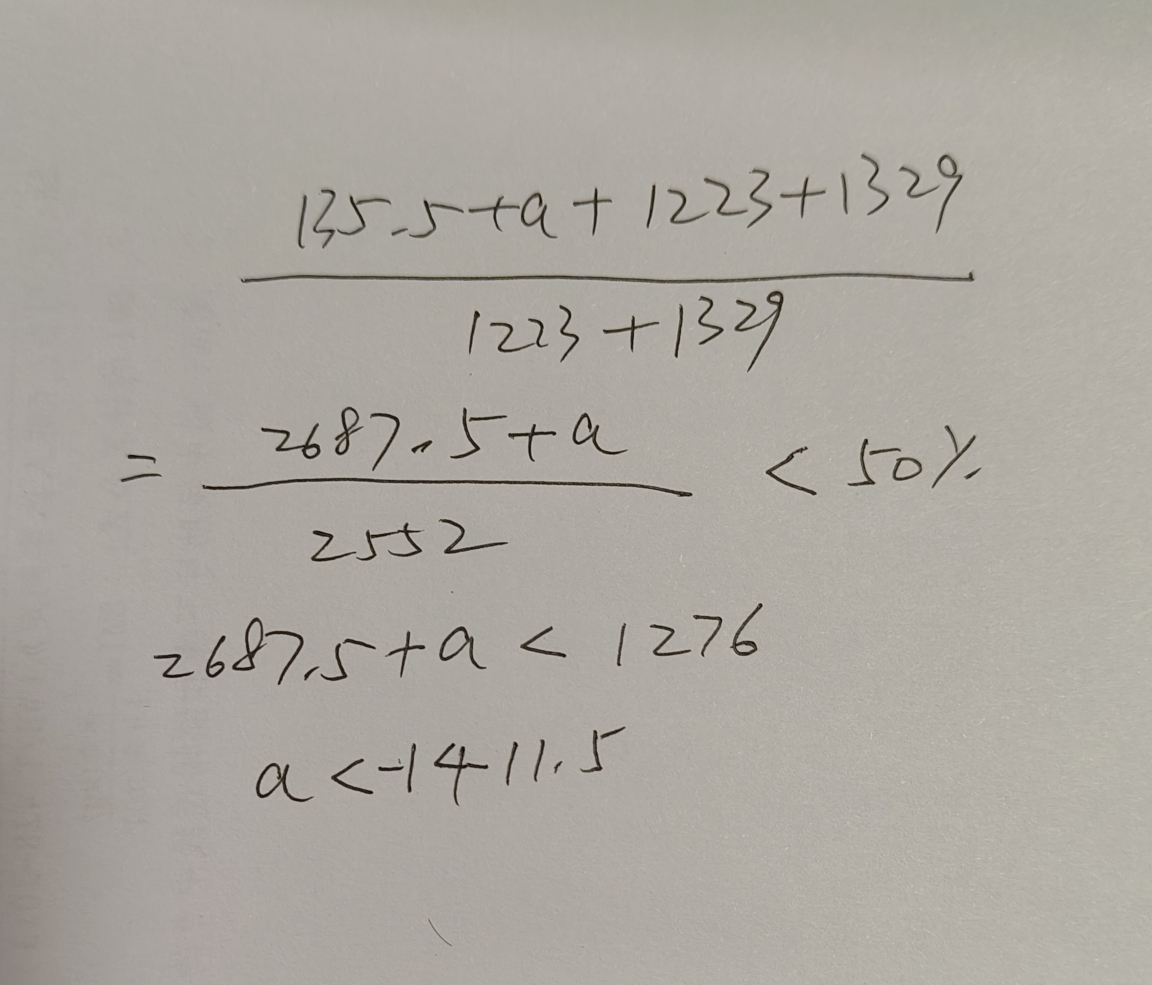 135.5+a+1223+1329
1223+1329
= 2687.5+a < 50%
2552
2687.5+a < 1276
a<-1411.5